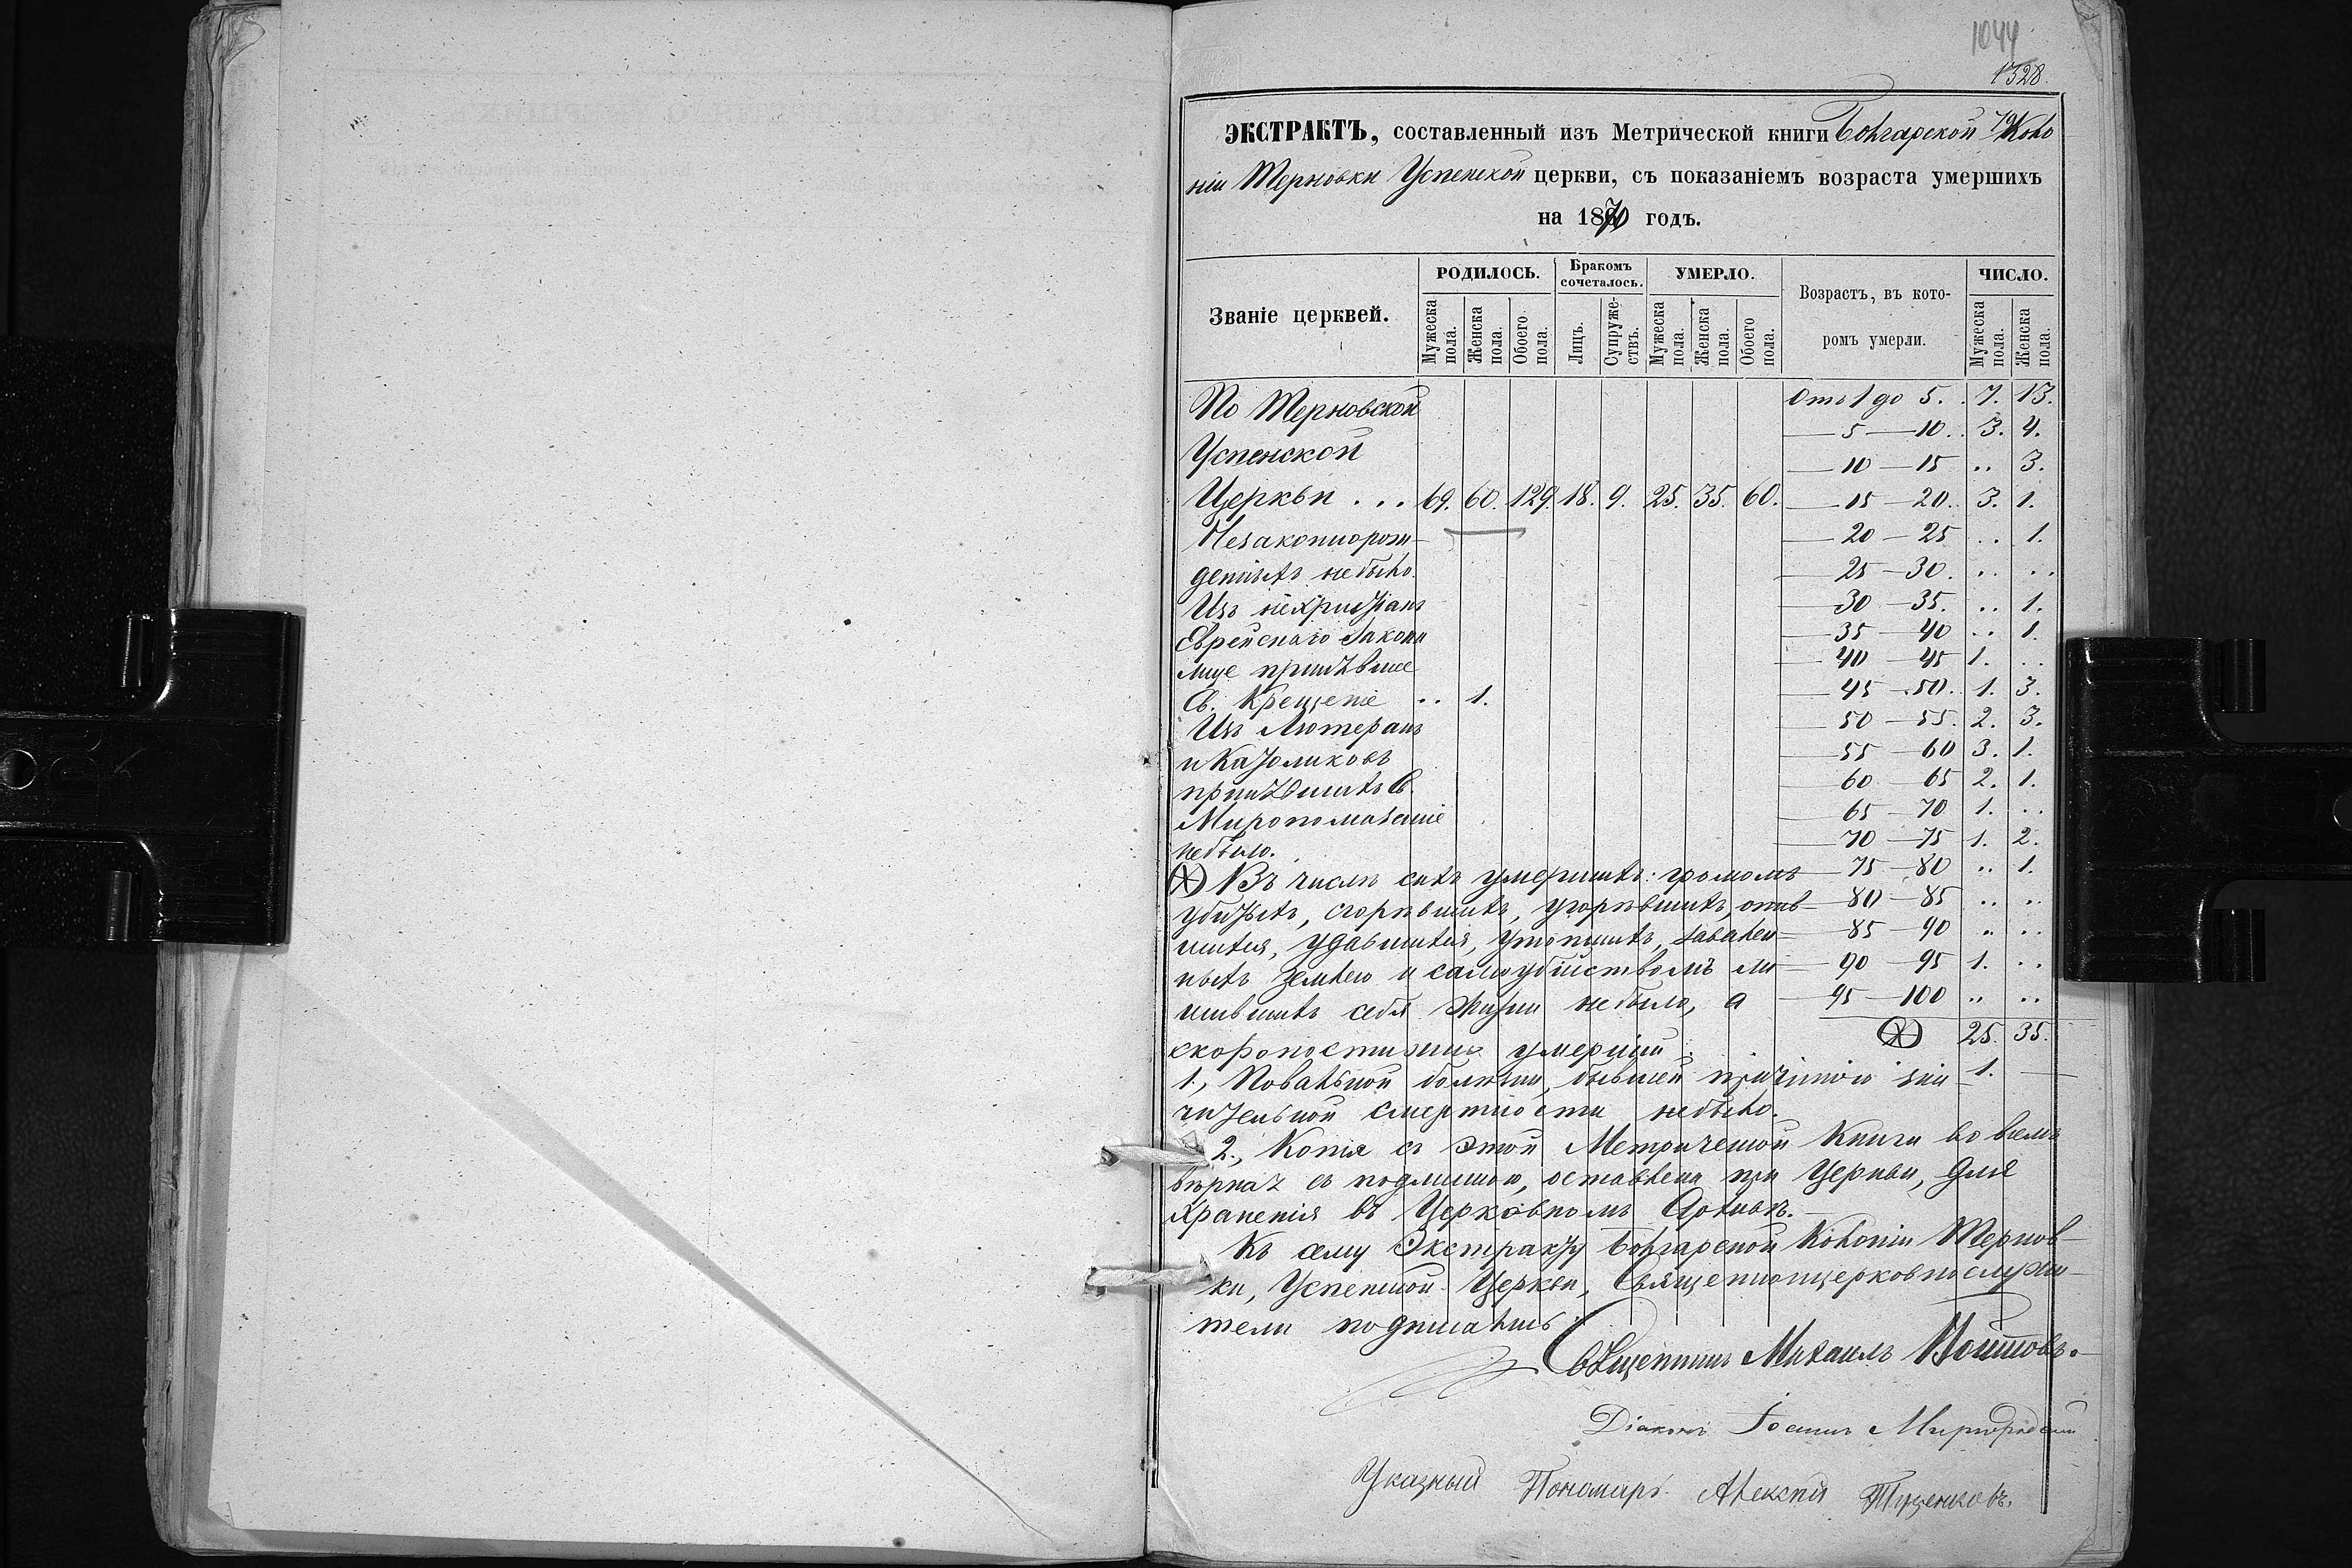 1044
1328.
ЭКСТРАКТЪ, составленный изъ Метрической книги Болгарской Коло
ніи Терновки Успенской церкви, съ показаніемъ возраста умершихъ
на 1870 годъ.
Званіе церквей.
РОДИЛОСЬ.
Бракомъ сочеталось.
УМЕРЛО.
Возрастъ, въ кото-
ромъ умерли.
ЧИСЛО.
Мужеска пола.
Женска пола.
Обоего пола.
Лицъ.
Супруже-ствъ.
Мужеска пола.
Женска пола.
Обоего пола.
Мужеска пола.
Женска пола.
По Терновской Отъ 1 до 5. 7. 13.
— 5 — 10. 3. 4.
Успенской — 10 — 15 .. 3.
Церкви . . . 69. 60. 129. 18. 9. 25. 35. 60. — 15 — 20. 3. 1.
Незаконнорож- — 20 — 25 .. 1.
денныхъ небыло. — 25 — 30. .. ..
Изъ нехристіанъ — 30 — 35. .. 1.
Еврейскаго Закона — 35 — 40 .. 1.
лице принявшее — 40 — 45 1. ..
Св. Крещеніе .. 1. — 45 — 50. 1. 3.
Изъ Лютеранъ — 50 — 55. 2. 3.
и Католиковъ — 55 — 60 3. 1.
принявшихъ Св. — 60 — 65 2. 1.
Миропомазаніе — 65 — 70 1. ..
небыло. — 70 — 75 1. 2.
Въ числѣ сихъ умершихъ: громомъ — 75 — 80 .. 1.
убитыхъ, сгорѣвшихъ, угорѣвшихъ, опив- — 80 — 85 .. ..
шихся, удавшихся, утопшихъ, завален- — 85 — 90 .. ..
ныхъ землею и самоубійствомъ ли- — 90 — 95 1. ..
шившихъ себя жизни небыло, а — 95 — 100 .. ..
25. 35.
скоропостижно умершій
1., Повальной болѣзни, бывшей причиною зна- 1. —
чительной смертности небыло.
2., Копія съ этой Метрической Книги во всемъ
вѣрная съ подлинною, оставлена при Церкви, для
храненія въ Церковномъ Архивѣ.—
Къ сему Экстракту Болгарской Колоніи Тернов-
ки, Успенской Церкви, Священноцерковнослужи-
тели подписались:
Священникъ Михаилъ
Діаконъ Іоаннъ Миргородскій
Указный Пономарь Алексѣй